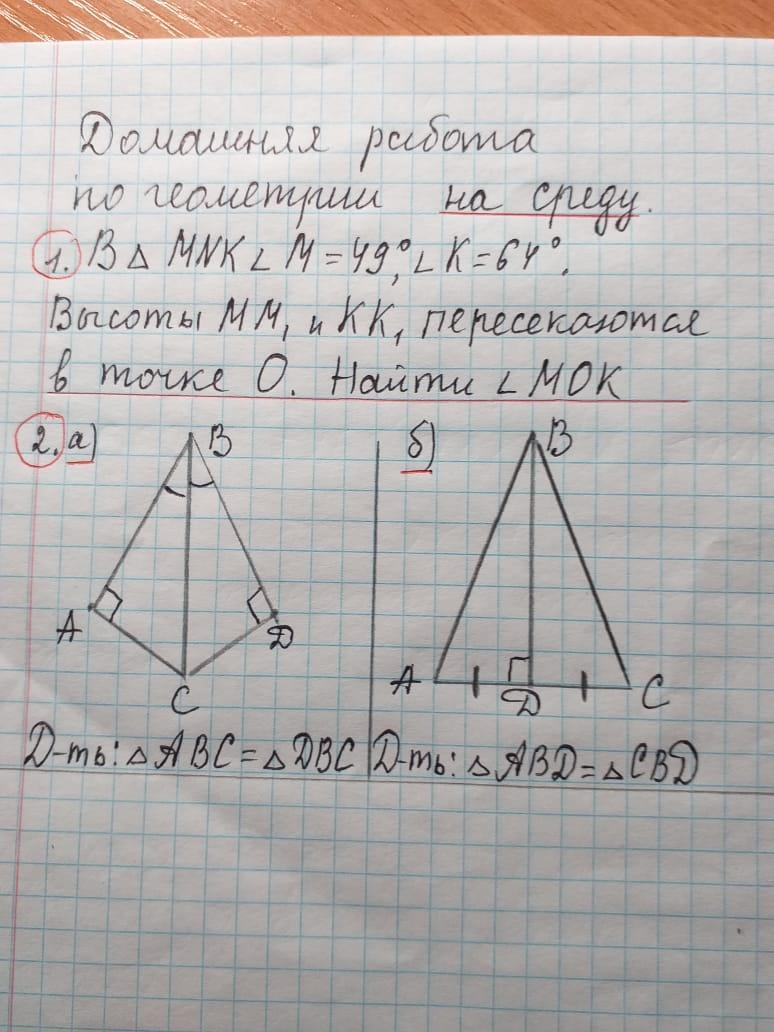 Домашняя работа
по геометрии на среду.
1. В △ MNK ∠ M = 49°, ∠ K = 64°.
Высоты MM₁ и KK₁ пересекаются
в точке O. Найти ∠ MOK
2. а)
B
A
D
C
Д-ть: △ ABC = △ DBC
б)
B
A
D
C
Д-ть: △ ABD = △ CBD